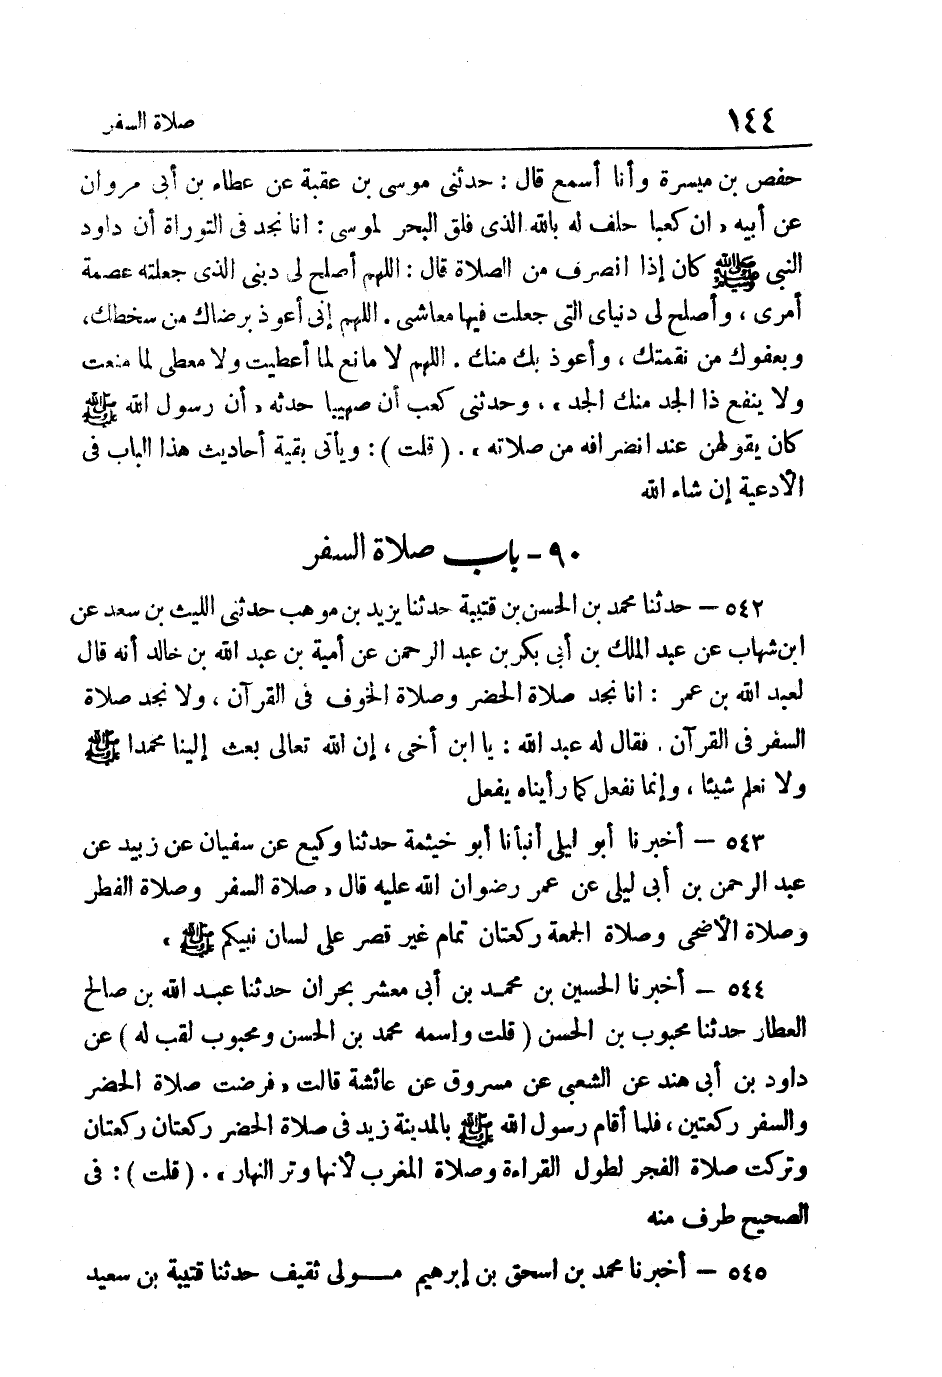 ١٤٤ صلاة السفر
حفص بن ميسرة وأنا أسمع قال : حدثنى موسى بن عقبة عن عطاء بن أبى مروان
عن أبيه « ان كعبا حلف له بالله الذى فلق البحر لموسى : انا نجد فى التوراة أن داود
النبى ﷺ كان إذا انصرف من الصلاة قال : اللهم أصلح لى دينى الذى جعلته عصمة
أمرى ، وأصلح لى دنياى التى جعلت فيها معاشى . اللهم إنى أعوذ برضاك من سخطك،
وبعفوك من نقمتك ، وأعوذ بك منك . اللهم لا مانع لما أعطيت ولا معطى لما منعت
ولا ينفع ذا الجد منك الجد » ، وحدثنى كعب أن صهيبا حدثه « أن رسول الله ﷺ
كان يقولهن عند انصرافه من صلاته » . ( قلت ) : ويأتى بقية أحاديث هذا الباب فى
الأدعية إن شاء الله
٩٠ - باب صلاة السفر
٥٤٢ – حدثنا محمد بن الحسن بن قتيبة حدثنا يزيد بن موهب حدثنى الليث بن سعد عن
ابن شهاب عن عبد الملك بن أبى بكر بن عبد الرحمن عن أمية بن عبد الله بن خالد أنه قال
لعبد الله بن عمر : انا نجد صلاة الحضر وصلاة الخوف فى القرآن ، ولا نجد صلاة
السفر فى القرآن . فقال له عبد الله : يا ابن أخى ، إن الله تعالى بعث إلينا محمدا ﷺ
ولا نعلم شيئا ، وإنما نفعل كما رأيناه يفعل
٥٤٣ – أخبرنا أبو ليلى أنبأنا أبو خيثمة حدثنا وكيع عن سفيان عن زبيد عن
عبد الرحمن بن أبى ليلى عن عمر رضوان الله عليه قال « صلاة السفر وصلاة الفطر
وصلاة الأضحى وصلاة الجمعة ركعتان تمام غير قصر على لسان نبيكم ﷺ »
٥٤٤ – أخبرنا الحسين بن محمد بن أبى معشر بحران حدثنا عبد الله بن صالح
العطار حدثنا محبوب بن الحسن ( قلت واسمه محمد بن الحسن ومحبوب لقب له ) عن
داود بن أبى هند عن الشعبى عن مسروق عن عائشة قالت « فرضت صلاة الحضر
والسفر ركعتين ، فلما أقام رسول الله ﷺ بالمدينة زيد فى صلاة الحضر ركعتان ركعتان
وتركت صلاة الفجر لطول القراءة وصلاة المغرب لأنها وتر النهار » . ( قلت ) : فى
الصحيح طرف منه
٥٤٥ – أخبرنا محمد بن اسحق بن إبرهيم مولى ثقيف حدثنا قتيبة بن سعيد